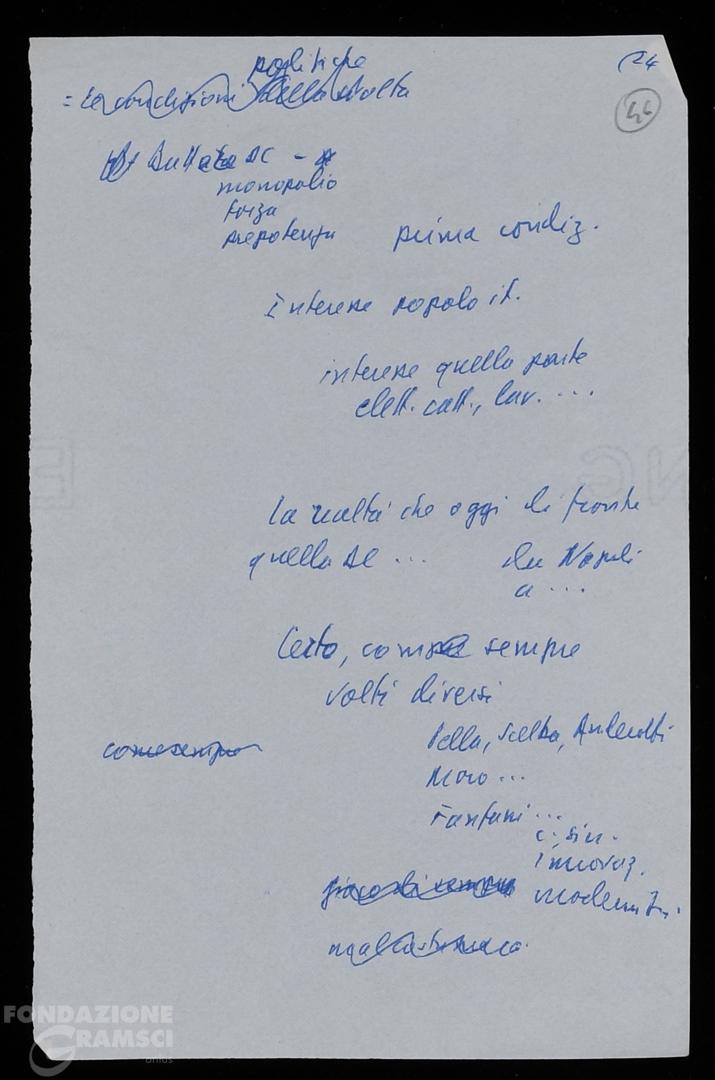 (24
46
politiche
= Le condizioni della svolta
Battuta DC -
monopolio
forza
prepotenza
prima condiz.
Interesse popolo it.
interesse quella parte
elett. catt., lav. ...
La realtà che oggi di fronte
quella DC ...
da Napoli
a ...
Certo, come sempre
volti diversi
Pella, Scelba, Andreotti
come sempre
Moro ...
Fanfani ...
c. sin.
innovaz.
moderniz.
gioco di sempre
FONDAZIONE
GRAMSCI
onlus